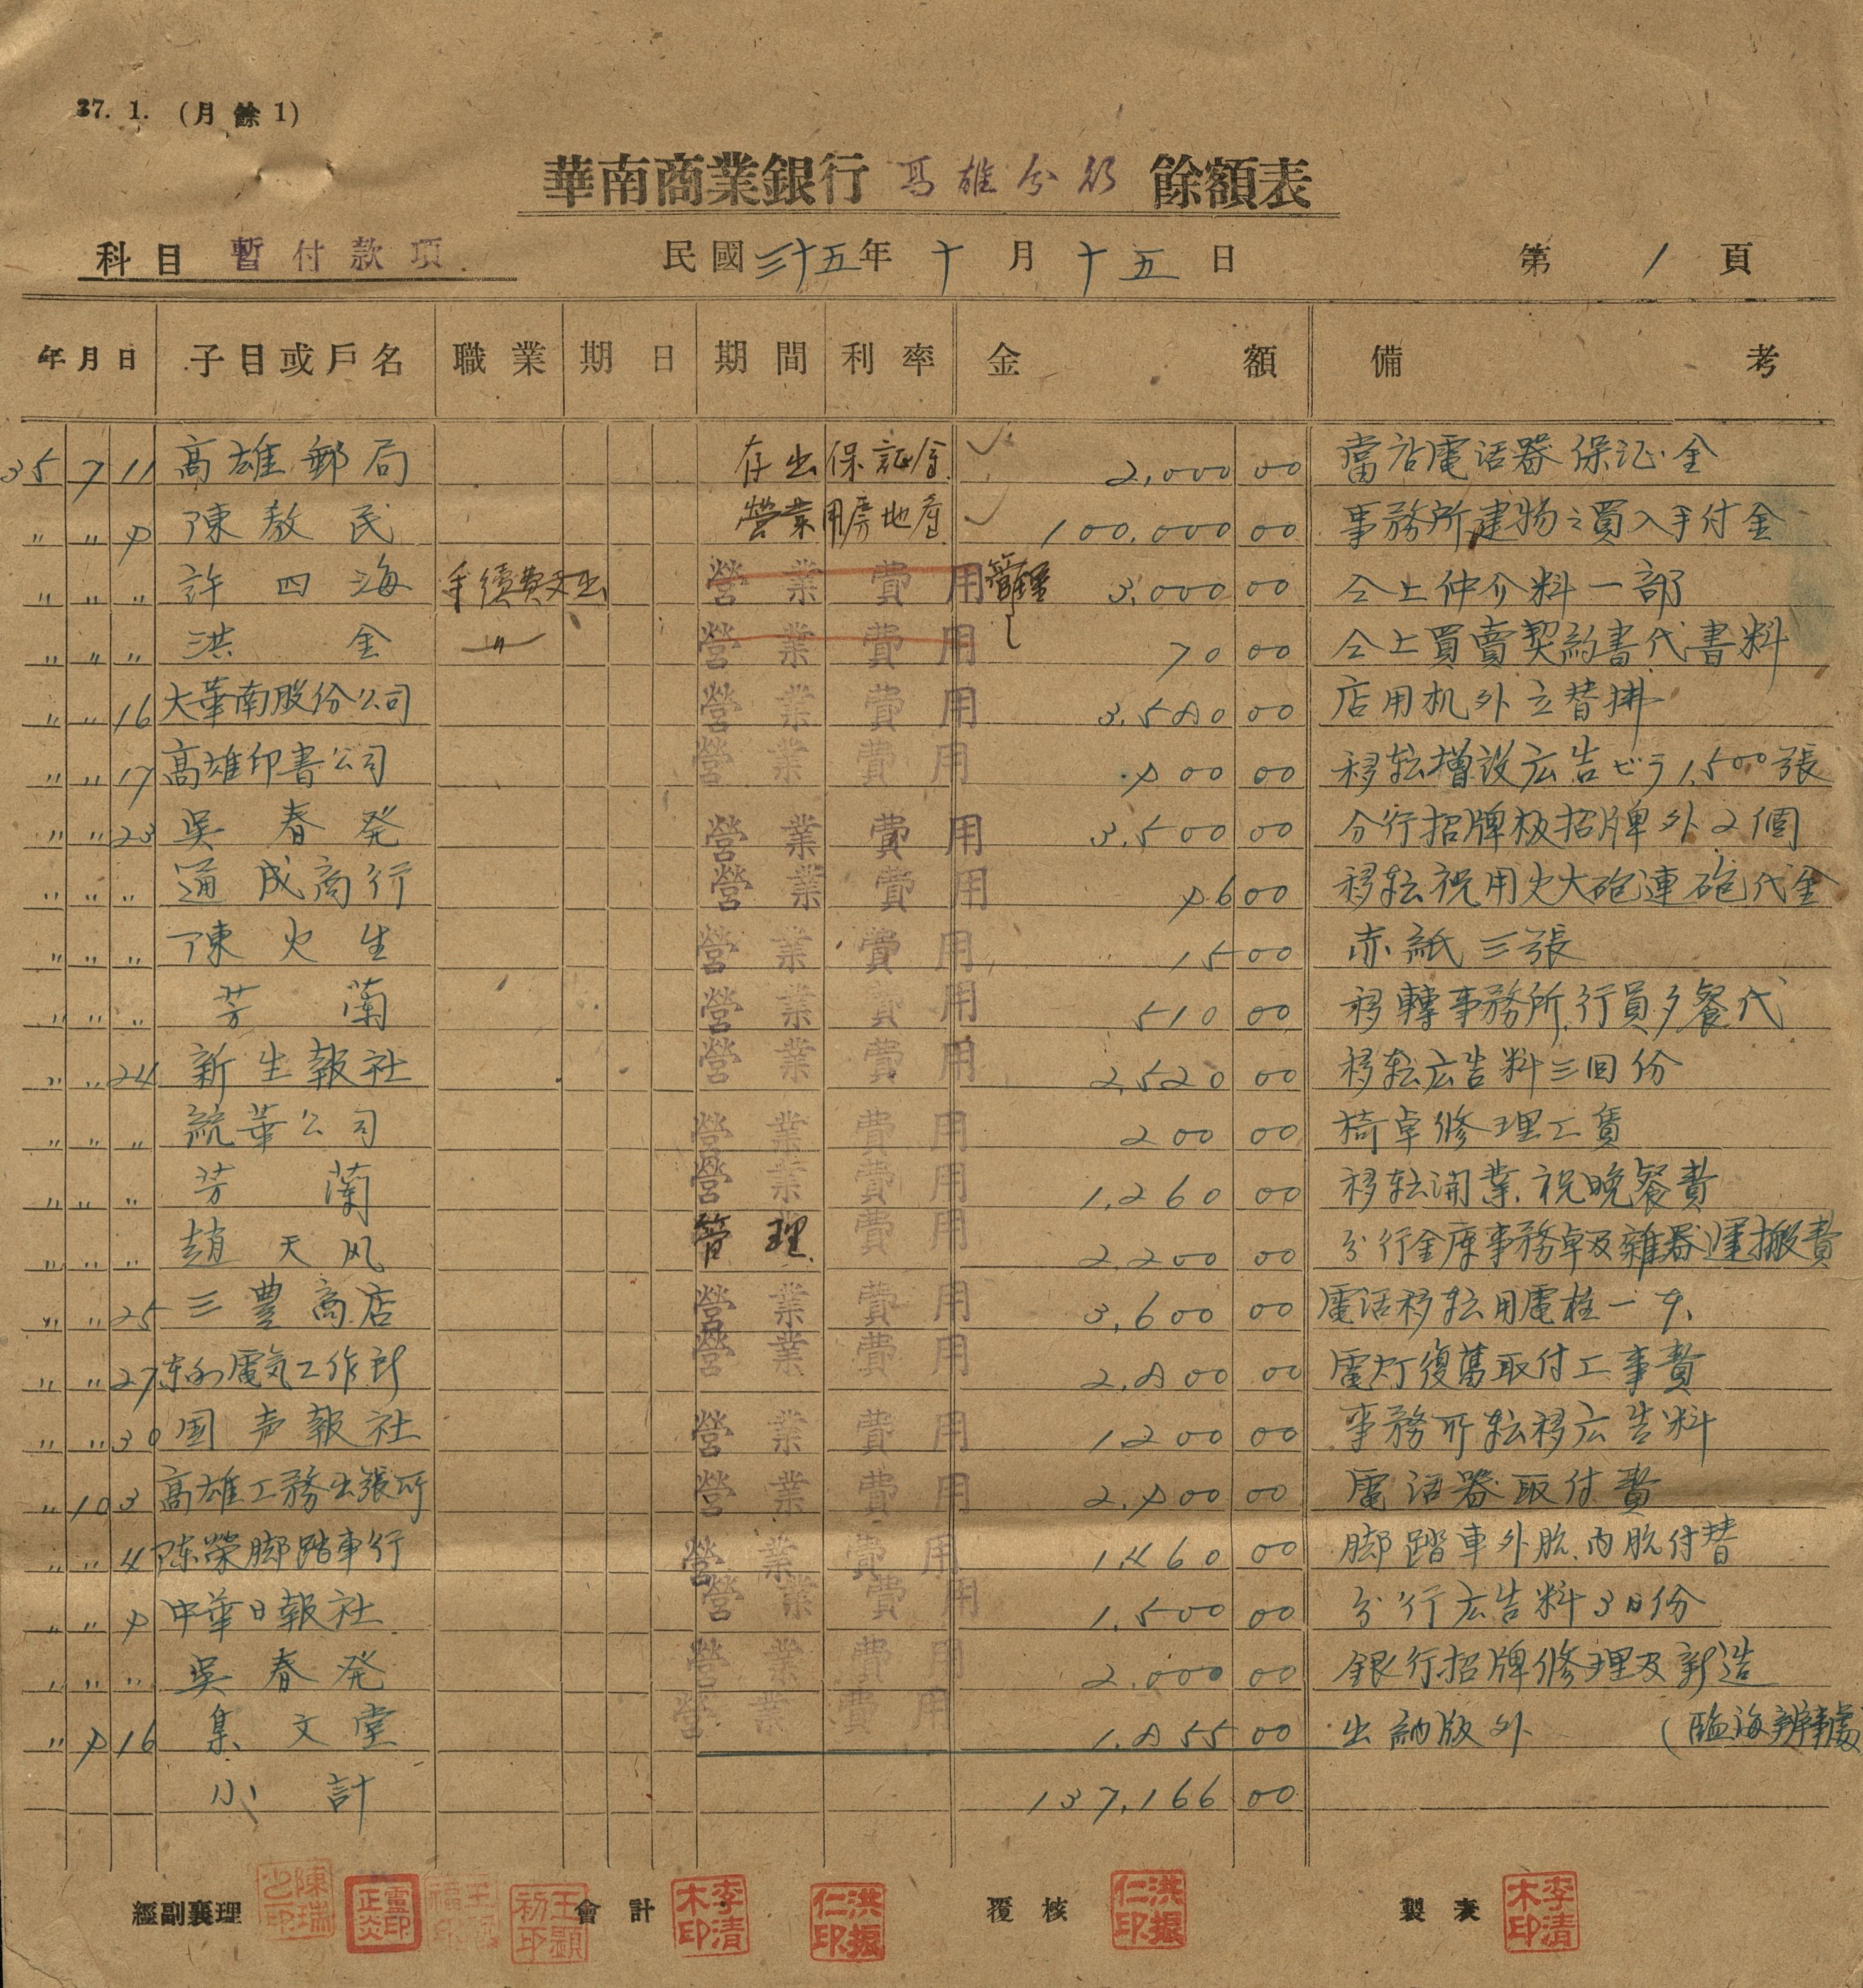 37. 1. (月餘1)
華南商業銀行 高雄分行 餘額表
科目 暫付款項 民國三十五年十月十五日 第1頁
年月日 子目或戶名 職業 期日 期間 利率 金額 備考
35 7 11 高雄郵局 存出保証金 2,000 00 當店電话器保证金
〃 〃 9 陳敖民 營業用房地產 100,000 00 事務所建物之買入手付金
〃 〃 〃 許四海 手續費支出 營業費用 管理 3,000 00 仝上仲介料一部
〃 〃 〃 洪金 〃 營業費用 70 00 仝上買賣契約書代書料
〃 〃 16 大華南股份公司 營業費用 3,580 00 店用机外立替拂
〃 〃 17 高雄印書公司 營業費用 900 00 移転增設広告ビラ1,500張
〃 〃 23 吳春発 營業費用 3,500 00 分行招牌板招牌外2個
〃 〃 〃 通成商行 營業費用 96 00 移転祝用火大砲連砲代金
〃 〃 〃 陳火生 營業費用 15 00 赤紙三張
〃 〃 〃 芳蘭 營業費用 510 00 移轉事務所,行員夕餐代
〃 〃 24 新生報社 營業費用 2,520 00 移転広告料三回份
〃 〃 〃 統華公司 營業費用 200 00 椅卓修理工賃
〃 〃 〃 芳蘭 營業費用 1,260 00 移転開業.祝晚餐費
〃 〃 〃 趙天风 管理費用 2,200 00 分行金庫事務卓及雜器運搬費
〃 〃 25 三豊商店 營業費用 3,600 00 電话移転用電柱一才.
〃 〃 27 东和電気工作所 營業費用 2,800 00 電灯復舊取付工事費
〃 〃 30 国声報社 營業費用 1,200 00 事務所転移広告料
〃 10 3 高雄工務出張所 營業費用 2,900 00 電话器取付費
〃 〃 4 陈榮脚踏車行 營業費用 1,460 00 脚踏車外胎.内胎付替
〃 〃 9 中華日報社 營業費用 1,500 00 分行広告料3日份
〃 〃 〃 吳春発 營業費用 2,000 00 銀行招牌修理及新造
〃 9 16 集文堂 營業費用 1,855 00 出納版外 (臨海辨事處
小計 137,166 00
經副襄理 陳瑞 盧正炎印 王顯初印 會計 李清木印 洪振仁印 覆核 洪振仁印 製表 李清木印